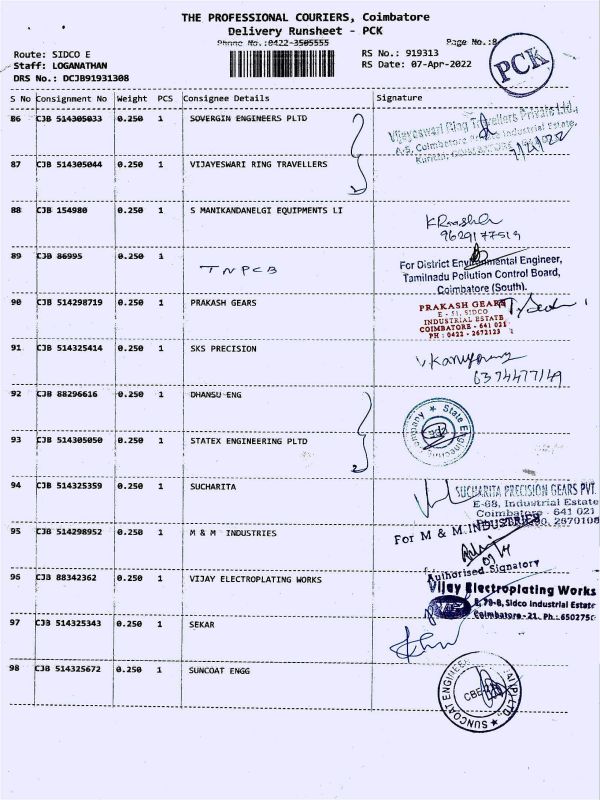 THE PROFESSIONAL COURIERS, Coimbatore
Delivery Runsheet - PCK
Phone No.:0422-3505555 Page No.:8
PCK
Route: SIDCO E RS No.: 919313
Staff: LOGANATHAN RS Date: 07-Apr-2022
DRS No.: DCJB91931308
S No Consignment No Weight PCS Consignee Details Signature
86 CJB 514305033 0.250 1 SOVERGIN ENGINEERS PLTD
Vijayeswari Ring Travellers Private Ltd.,
A-5, Coimbatore Industrial Estate,
87 CJB 514305044 0.250 1 VIJAYESWARI RING TRAVELLERS
88 CJB 154980 0.250 1 S MANIKANDANELGI EQUIPMENTS LI
9629177519
89 CJB 86995 0.250 1 TNPCB
For District Environmental Engineer,
Tamilnadu Pollution Control Board,
Coimbatore (South).
90 CJB 514298719 0.250 1 PRAKASH GEARS
PRAKASH GEARS
E - 51, SIDCO
INDUSTRIAL ESTATE
COIMBATORE - 641 021
PH : 0422 - 2672123
91 CJB 514325414 0.250 1 SKS PRECISION
6374477149
92 CJB 88296616 0.250 1 DHANSU ENG
93 CJB 514305050 0.250 1 STATEX ENGINEERING PLTD
2
94 CJB 514325359 0.250 1 SUCHARITA
SUCHARITA PRECISION GEARS PVT.
E-68, Industrial Estate
Coimbatore - 641 021
2670108
95 CJB 514298952 0.250 1 M & M INDUSTRIES
For M & M INDUSTRIES
Authorised Signatory
96 CJB 88342362 0.250 1 VIJAY ELECTROPLATING WORKS
Vijay Electroplating Works
78-B, Sidco Industrial Estate
Coimbatore-21. Ph.: 650275
97 CJB 514325343 0.250 1 SEKAR
98 CJB 514325672 0.250 1 SUNCOAT ENGG
SUNCOAT ENGINEER (P) LTD
CBE